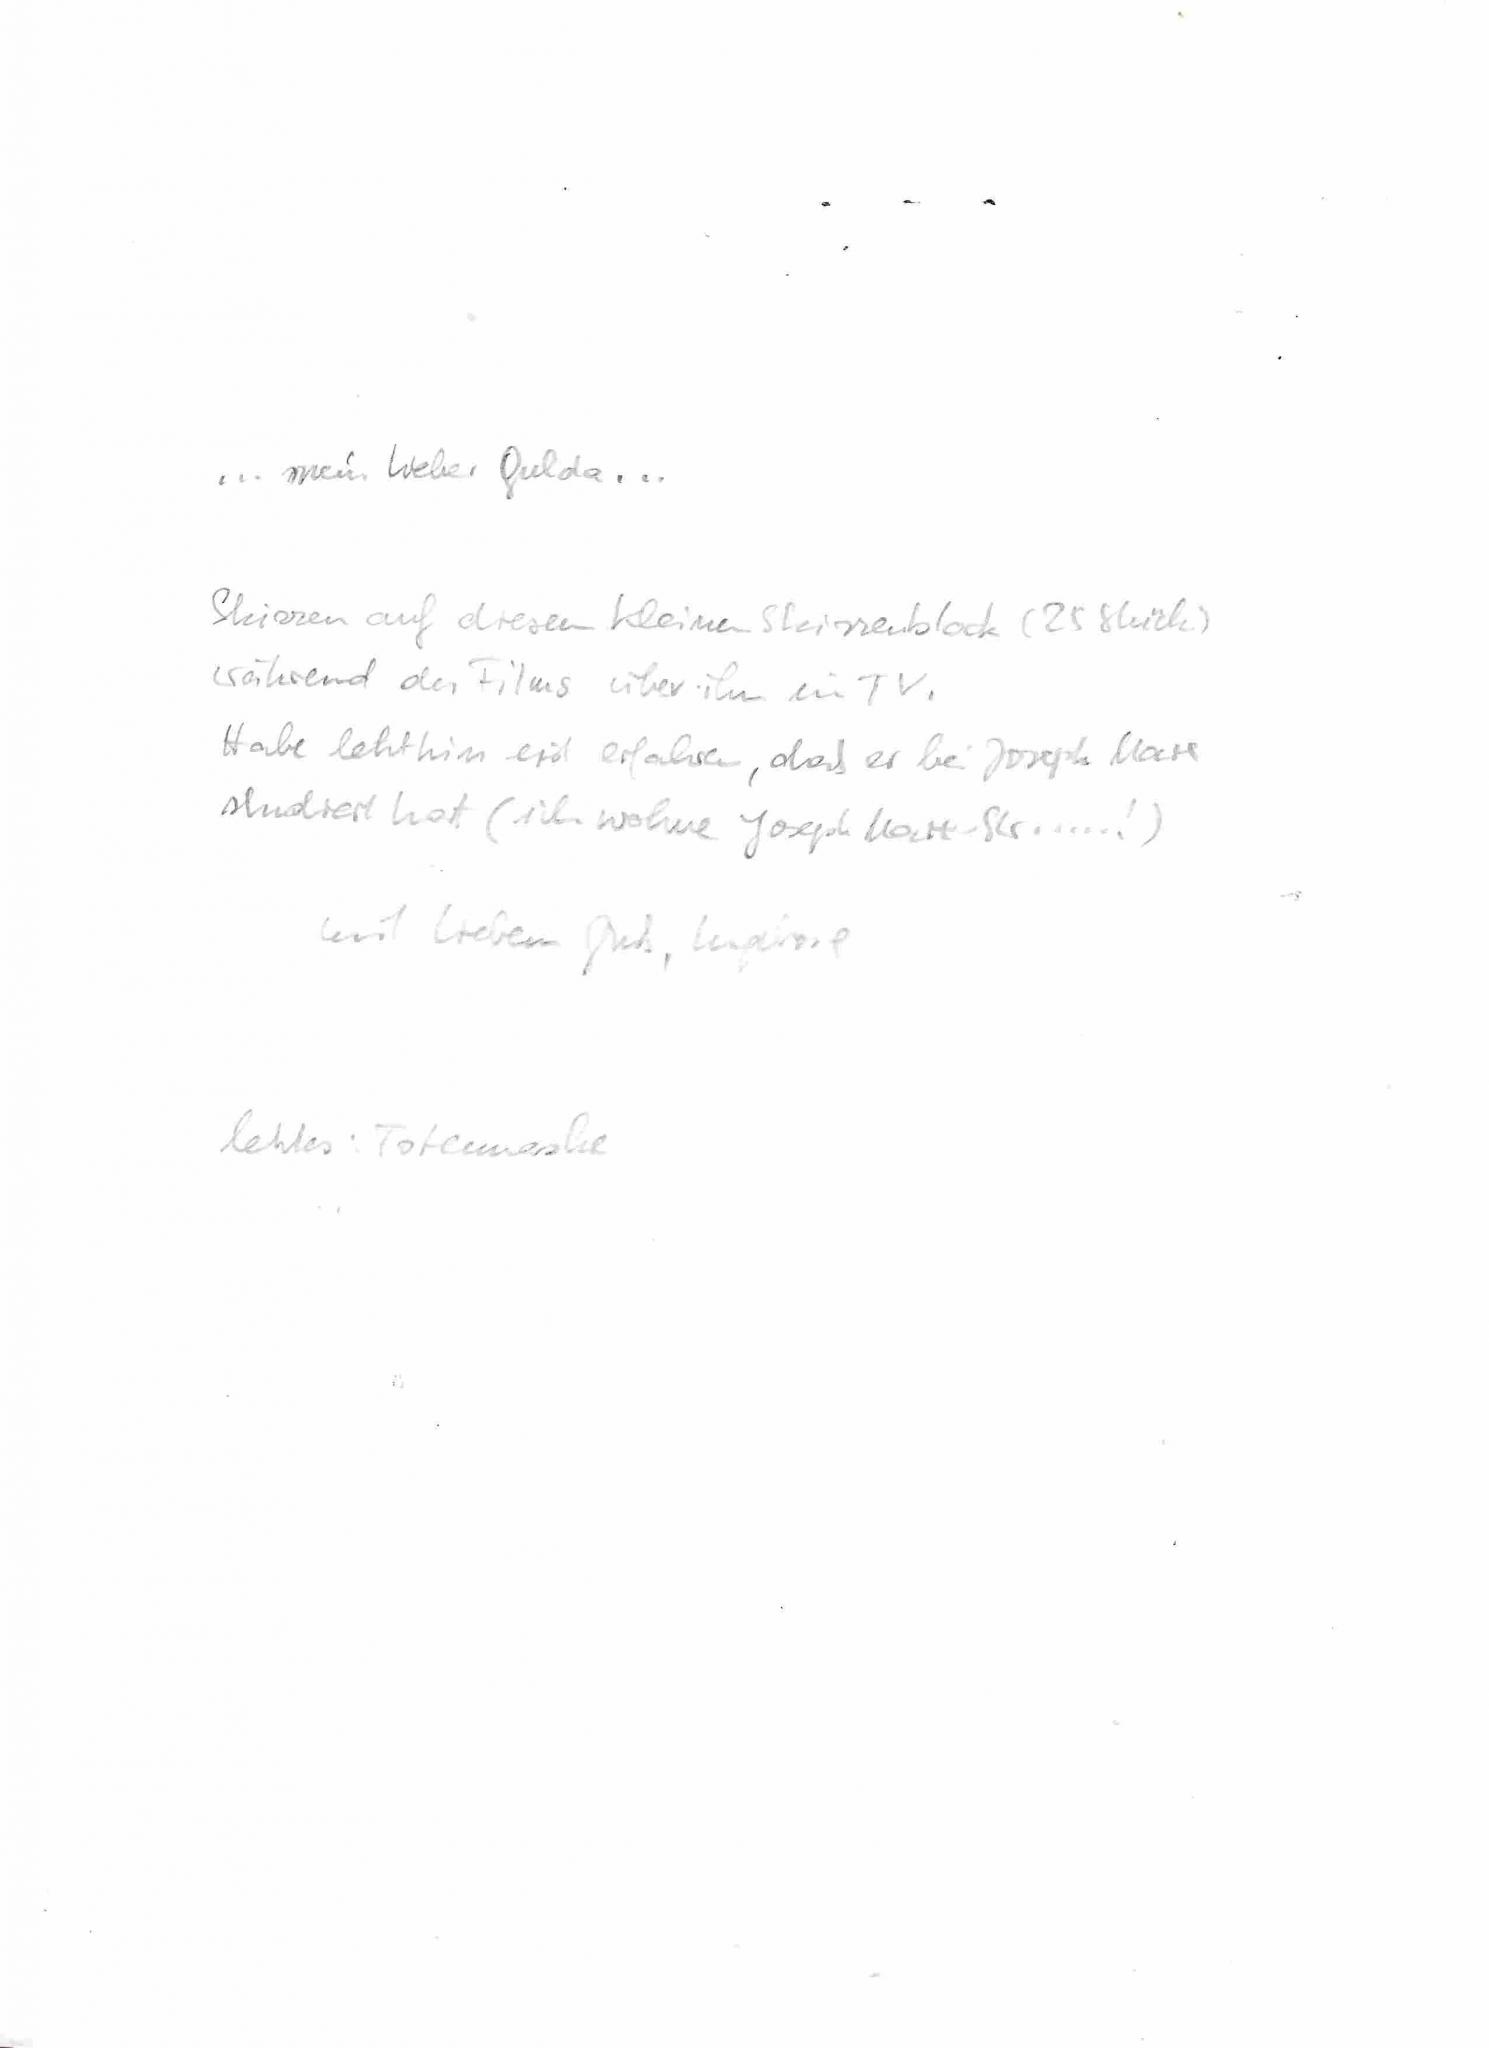 ... mein lieber Gulda...
Skizzen auf diesem kleinen Skizzenblock (25 Stück)
während des Films über ihn in TV.
Habe letzthin erst erfahren, daß er bei Joseph Marx
studiert hat (ich wohne Joseph Marx-Str......!)
mit liebem Gruß,
letztes: Totenmaske